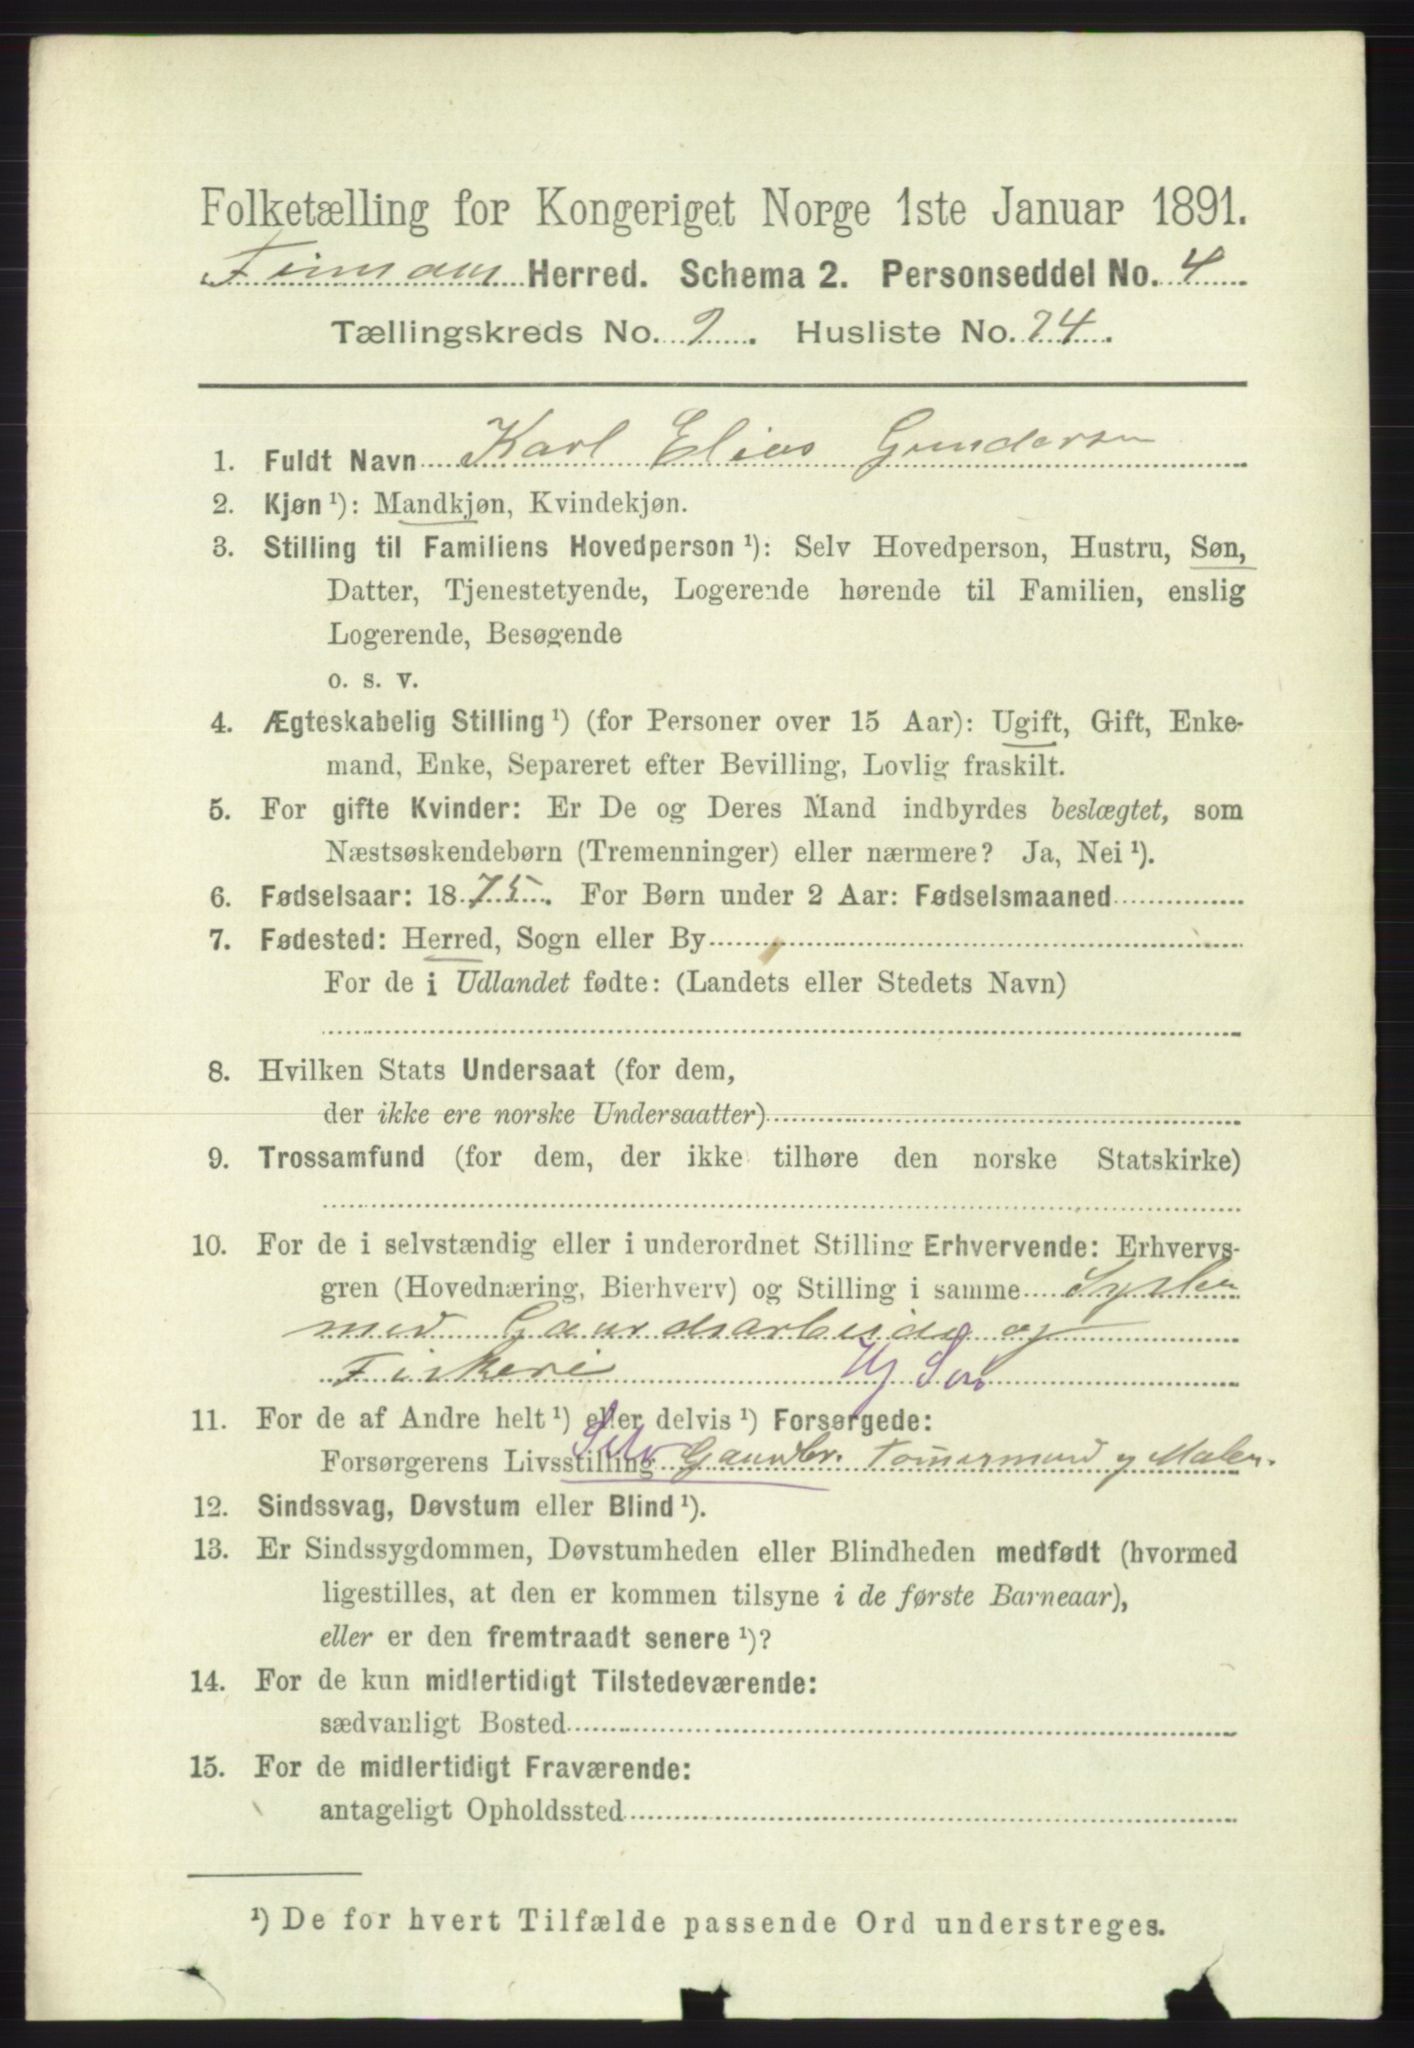 Folketælling for Kongeriget Norge 1ste Januar 1891.
Herred. Schema 2. Personseddel No. 4
Tællingskreds No. 9. Husliste No. 24.
1. Fuldt Navn Karl Elias Gundersen
2. Kjøn ¹): Mandkjøn, Kvindekjøn.
3. Stilling til Familiens Hovedperson ¹): Selv Hovedperson, Hustru, Søn,
Datter, Tjenestetyende, Logerende hørende til Familien, enslig
Logerende, Besøgende
o. s. v.
4. Ægteskabelig Stilling ¹) (for Personer over 15 Aar): Ugift, Gift, Enke-
mand, Enke, Separeret efter Bevilling, Lovlig fraskilt.
5. For gifte Kvinder: Er De og Deres Mand indbyrdes beslægtet, som
Næstsøskendebørn (Tremenninger) eller nærmere? Ja, Nei ¹).
6. Fødselsaar: 1875. For Børn under 2 Aar: Fødselsmaaned
7. Fødested: Herred, Sogn eller By
For de i Udlandet fødte: (Landets eller Stedets Navn)
8. Hvilken Stats Undersaat (for dem,
der ikke ere norske Undersaatter)
9. Trossamfund (for dem, der ikke tilhøre den norske Statskirke)
10. For de i selvstændig eller i underordnet Stilling Erhvervende: Erhvervs-
gren (Hovednæring, Bierhverv) og Stilling i samme Sysler
med Gaardsarbeide og
Fiskeri
11. For de af Andre helt ¹) eller delvis ¹) Forsørgede:
Forsørgerens Livsstilling Selv Gaardbr. Tømermand og Maler.
12. Sindssvag, Døvstum eller Blind ¹).
13. Er Sindssygdommen, Døvstumheden eller Blindheden medfødt (hvormed
ligestilles, at den er kommen tilsyne i de første Barneaar),
eller er den fremtraadt senere ¹)?
14. For de kun midlertidigt Tilstedeværende:
sædvanligt Bosted
15. For de midlertidigt Fraværende:
antageligt Opholdssted
¹) De for hvert Tilfælde passende Ord understreges.